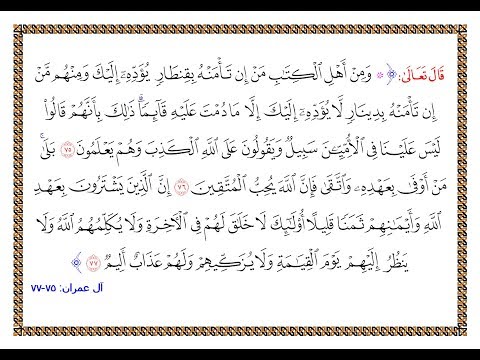 قَالَ تَعَالَىٰ: ﴿ ۞ وَمِنْ أَهْلِ ٱلْكِتَٰبِ مَنْ إِن تَأْمَنْهُ بِقِنطَارٖ يُؤَدِّهِۦٓ إِلَيْكَ وَمِنْهُم مَّنْ
إِن تَأْمَنْهُ بِدِينَارٖ لَّا يُؤَدِّهِۦٓ إِلَيْكَ إِلَّا مَا دُمْتَ عَلَيْهِ قَآئِمٗاۗ ذَٰلِكَ بِأَنَّهُمْ قَالُواْ
لَيْسَ عَلَيْنَا فِي ٱلْأُمِّيِّـۧنَ سَبِيلٞ وَيَقُولُونَ عَلَى ٱللَّهِ ٱلْكَذِبَ وَهُمْ يَعْلَمُونَ ٧٥ بَلَىٰۚ
مَنْ أَوْفَىٰ بِعَهْدِهِۦ وَٱتَّقَىٰ فَإِنَّ ٱللَّهَ يُحِبُّ ٱلْمُتَّقِينَ ٧٦ إِنَّ ٱلَّذِينَ يَشْتَرُونَ بِعَهْدِ
ٱللَّهِ وَأَيْمَٰنِهِمْ ثَمَنٗا قَلِيلًا أُوْلَٰٓئِكَ لَا خَلَٰقَ لَهُمْ فِي ٱلْأٓخِرَةِ وَلَا يُكَلِّمُهُمُ ٱللَّهُ وَلَا
يَنظُرُ إِلَيْهِمْ يَوْمَ ٱلْقِيَٰمَةِ وَلَا يُزَكِّيهِمْ وَلَهُمْ عَذَابٌ أَلِيمٞ ٧٧ ﴾
آل عمران: ٧٥-٧٧